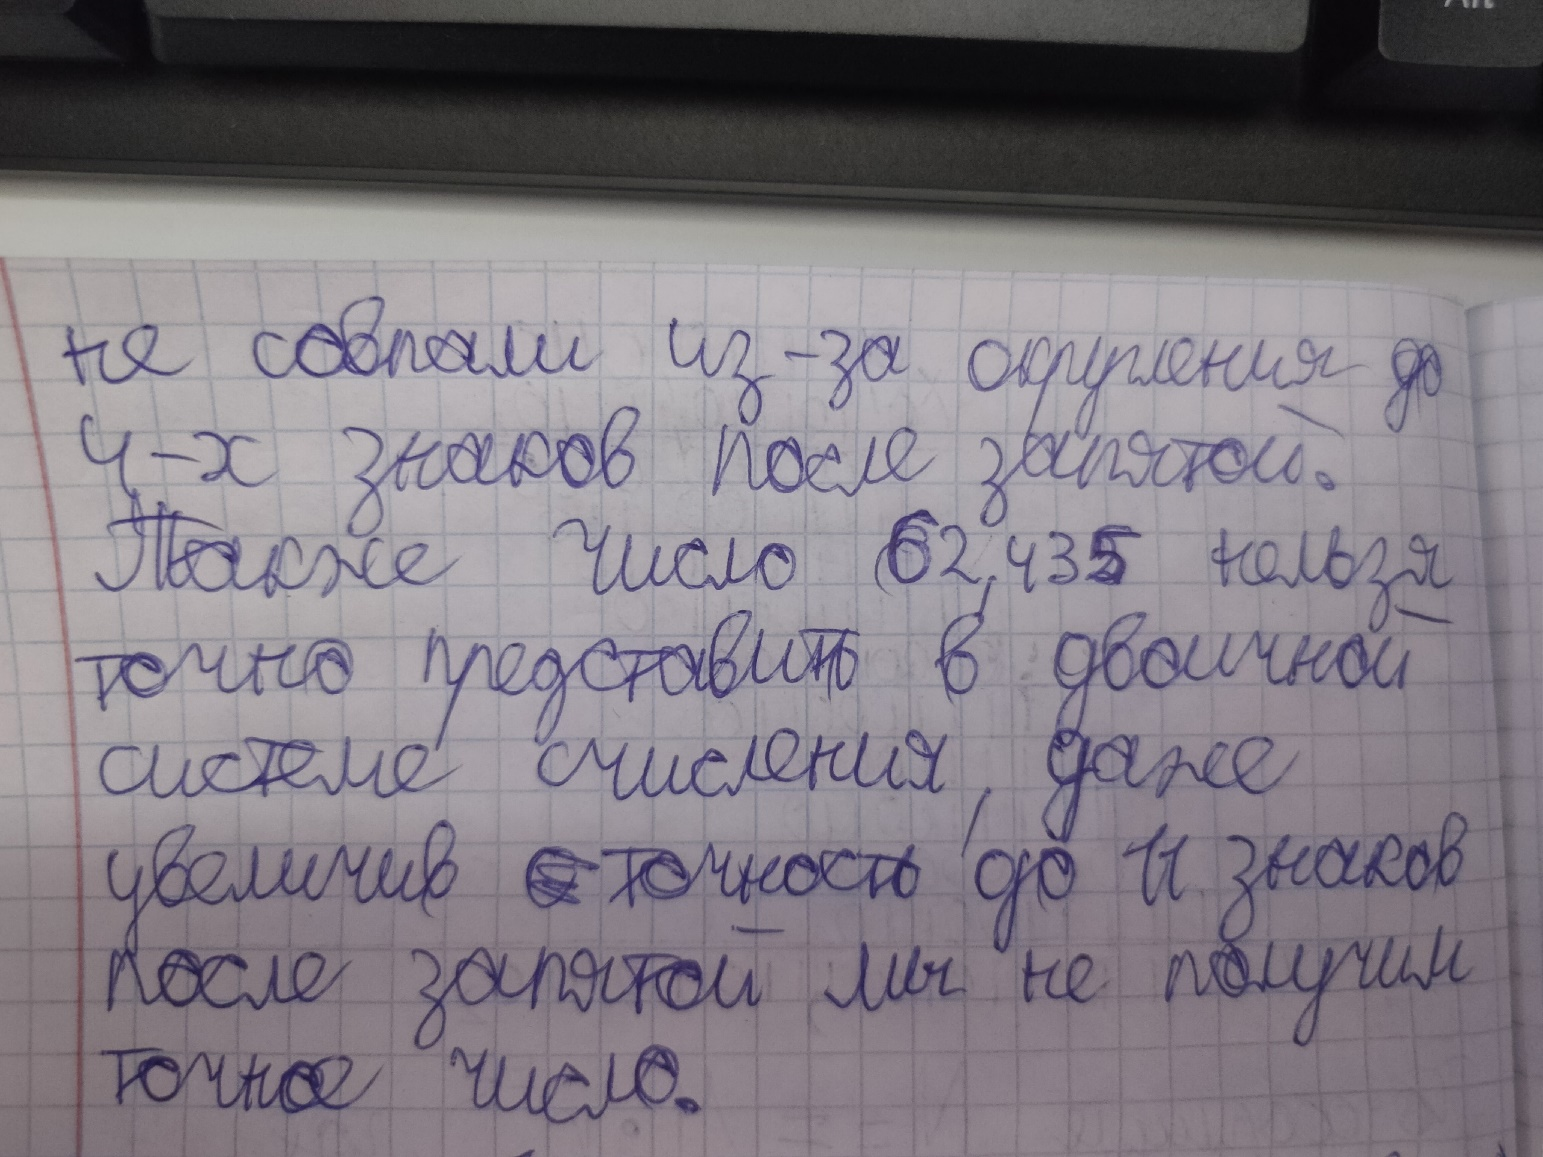 не совпали из-за округления до
4-х знаков после запятой.
Также число 62,435 нельзя
точно представить в двоичной
системе счисления, даже
увеличив точность до 11 знаков
после запятой мы не получим
точное число.
Alt